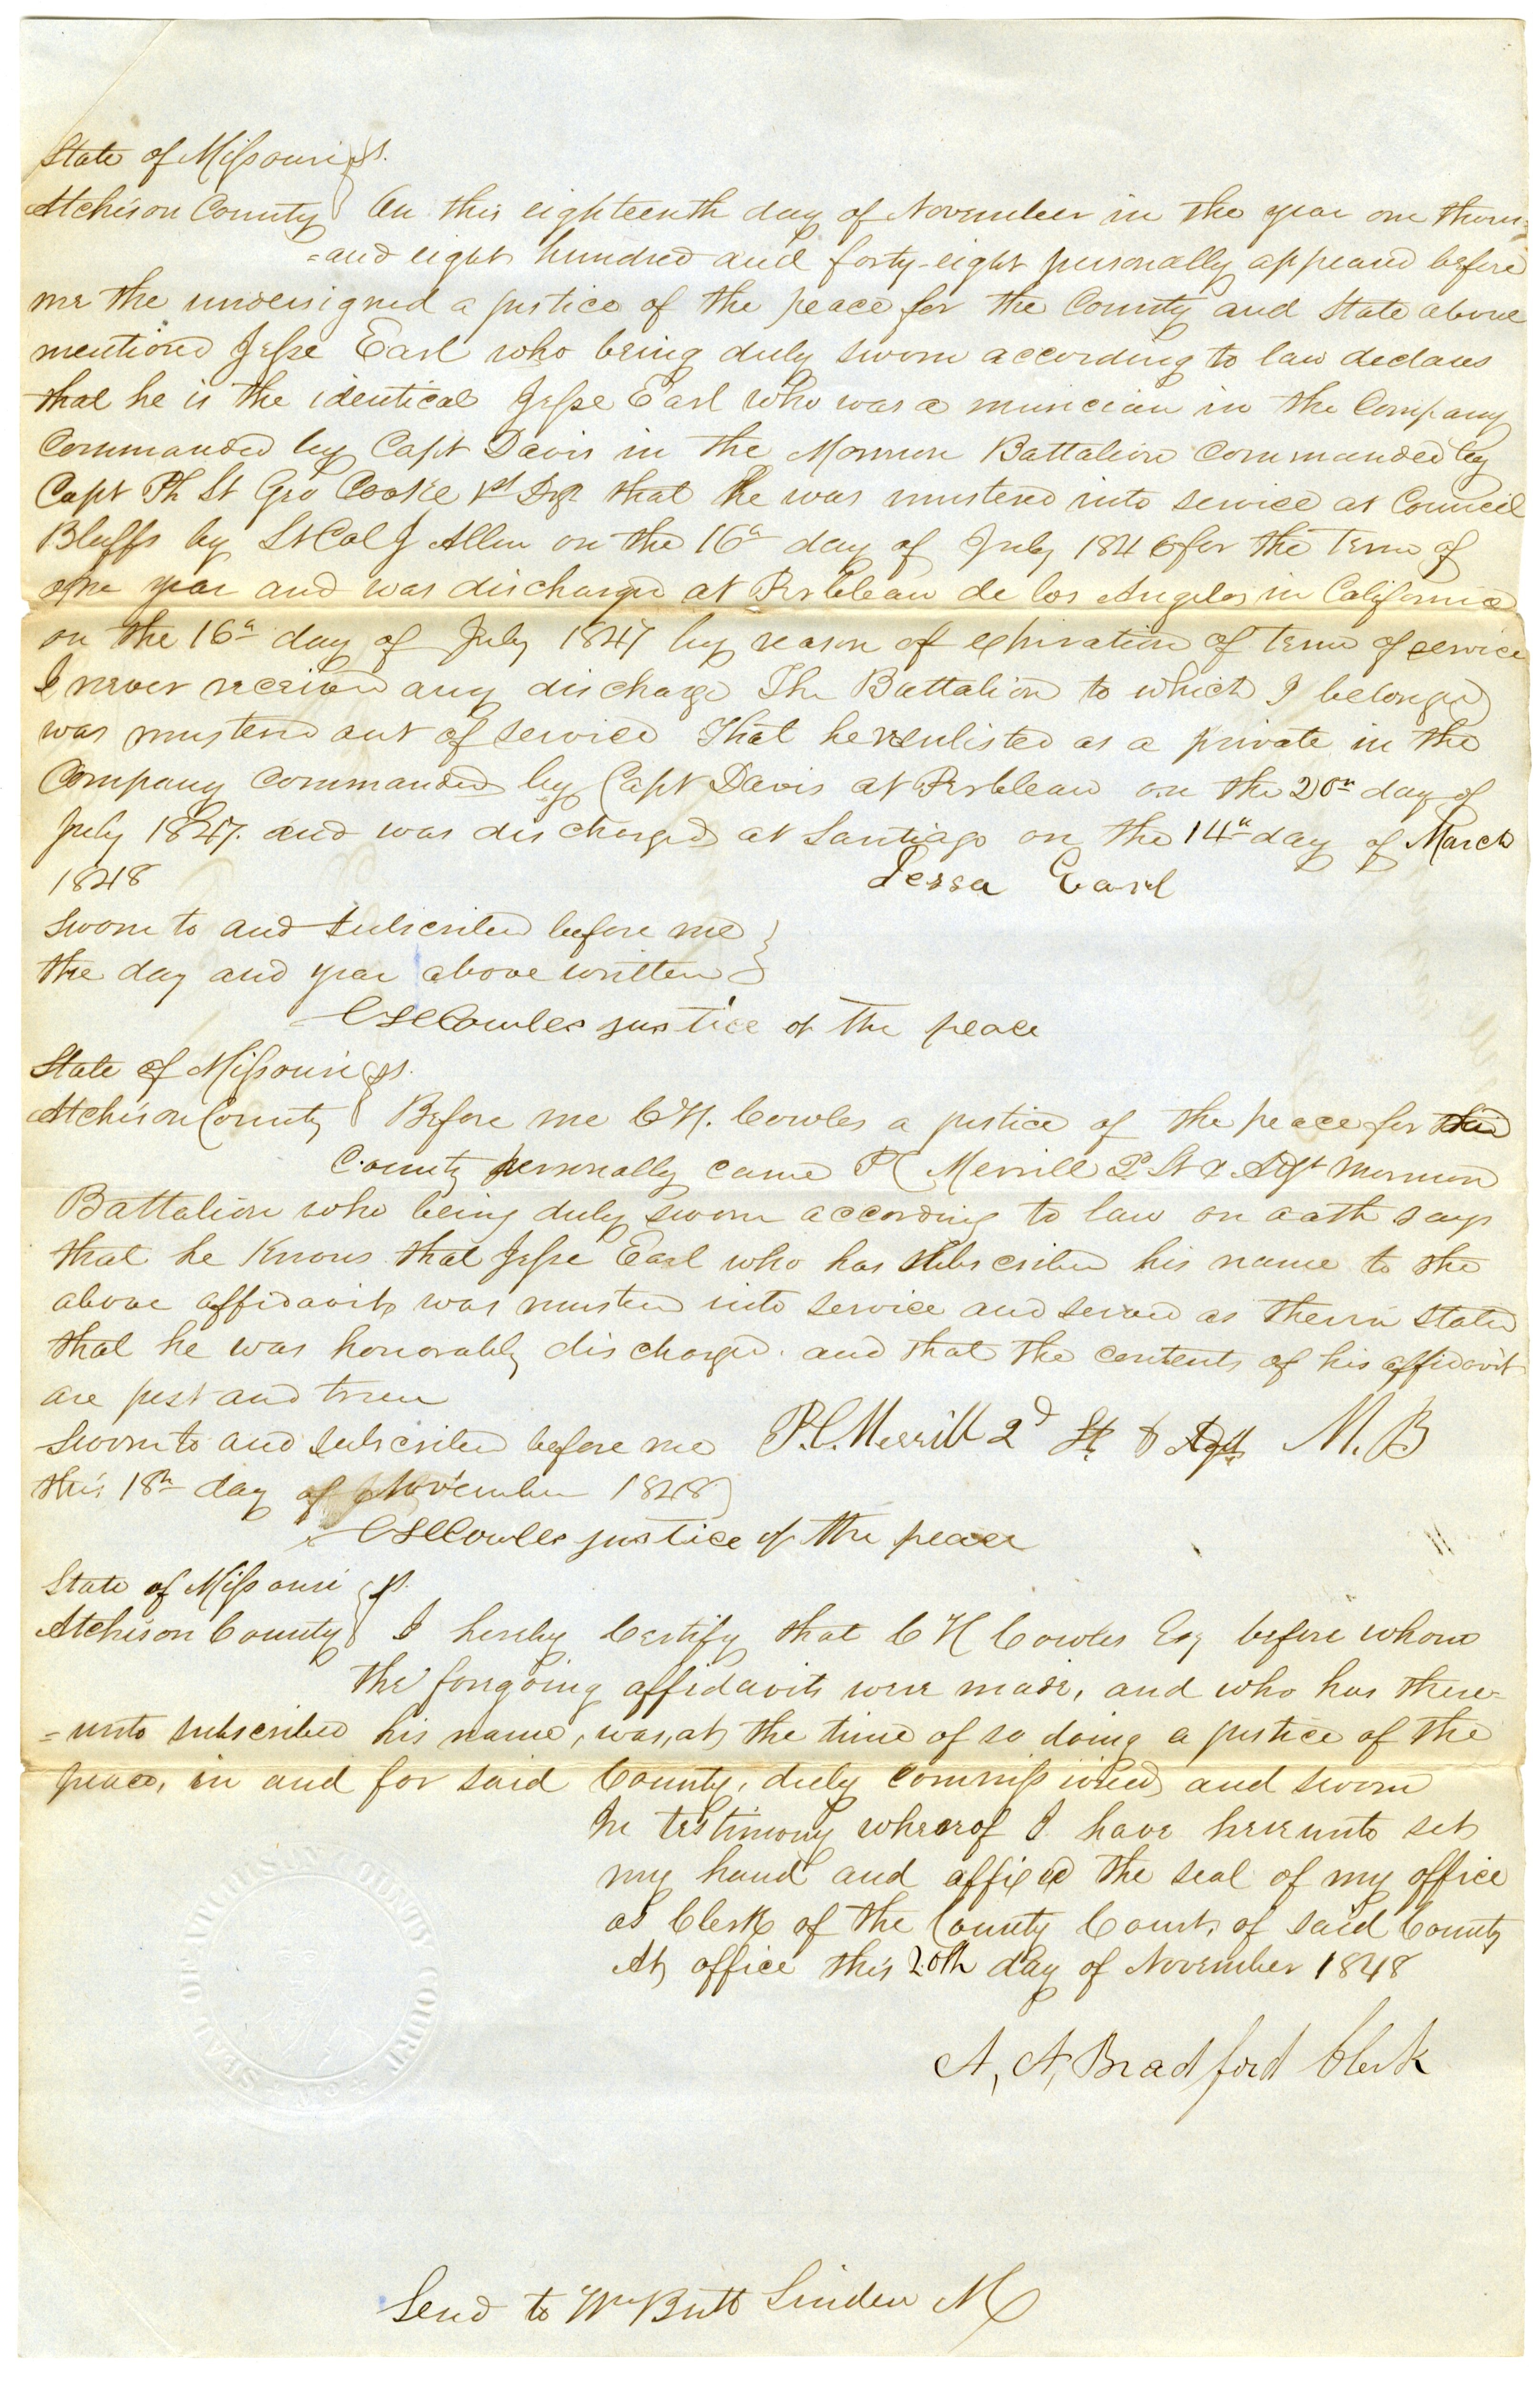 State of Missouri } ss.
Atchison County } On this eighteenth day of November in the year one thous=
=and eight hundred and forty-eight personally appeared before
me the undersigned a justice of the peace for the County and State above
mentioned Jesse Earl who being duly sworn according to law declares
that he is the identical Jesse Earl who was a musician in the Company
Commanded by Capt Davis in the Mormon Battalion Commanded by
Capt Ph St Geo Cooke 1st Dgs that he was mustered into service at Council
Bluffs by Lt Col J Allen on the 16th day of July 1846 for the term of
one year and was discharged at Puebleau de los Angelos in California
on the 16th day of July 1847 by reason of expiration of term of service
I never received any discharge The Battalion to which I belonged
was mustered out of service That he reenlisted as a private in the
Company Commanded by Capt Davis at Puebleau on the 20th day of
July 1847. and was discharged at Santiago on the 14th day of March
1848 Jessa Earl
Sworn to and subscribed before me }
the day and year above written }
C H Cowles justice of the peace
State of Missouri } ss.
Atchison County } Before me C H. Cowles a justice of the peace for said
County personally came P C Merrill 2d Lt & Adjt Mormon
Battalion who being duly sworn according to law on oath says
that he Knows that Jesse Earl who has subscribed his name to the
above affidavit was mustered into service and served as therein stated
that he was honorably discharged. and that the contents of his affidavit
are just and true
Sworn to and subscribed before me P. C. Merrill 2d Lt & Adjt M. B
this 18th day of November 1848 }
C H Cowles justice of the peace
State of Missouri } ss.
Atchison County } I hereby Certify that C H Cowles Esq before whom
the foregoing affidavits were made, and who has there=
=unto subscribed his name, was, at the time of so doing a justice of the
peace, in and for said County, duly commissioned and sworn
In testimony whereof I have hereunto set
my hand and affixed the seal of my office
as Clerk of the County Court, of said County
At office this 20th day of November 1848
A, A, Bradford Clerk
SEAL OF ATCHISON COUNTY COURT
Send to Wm Butt Linden M